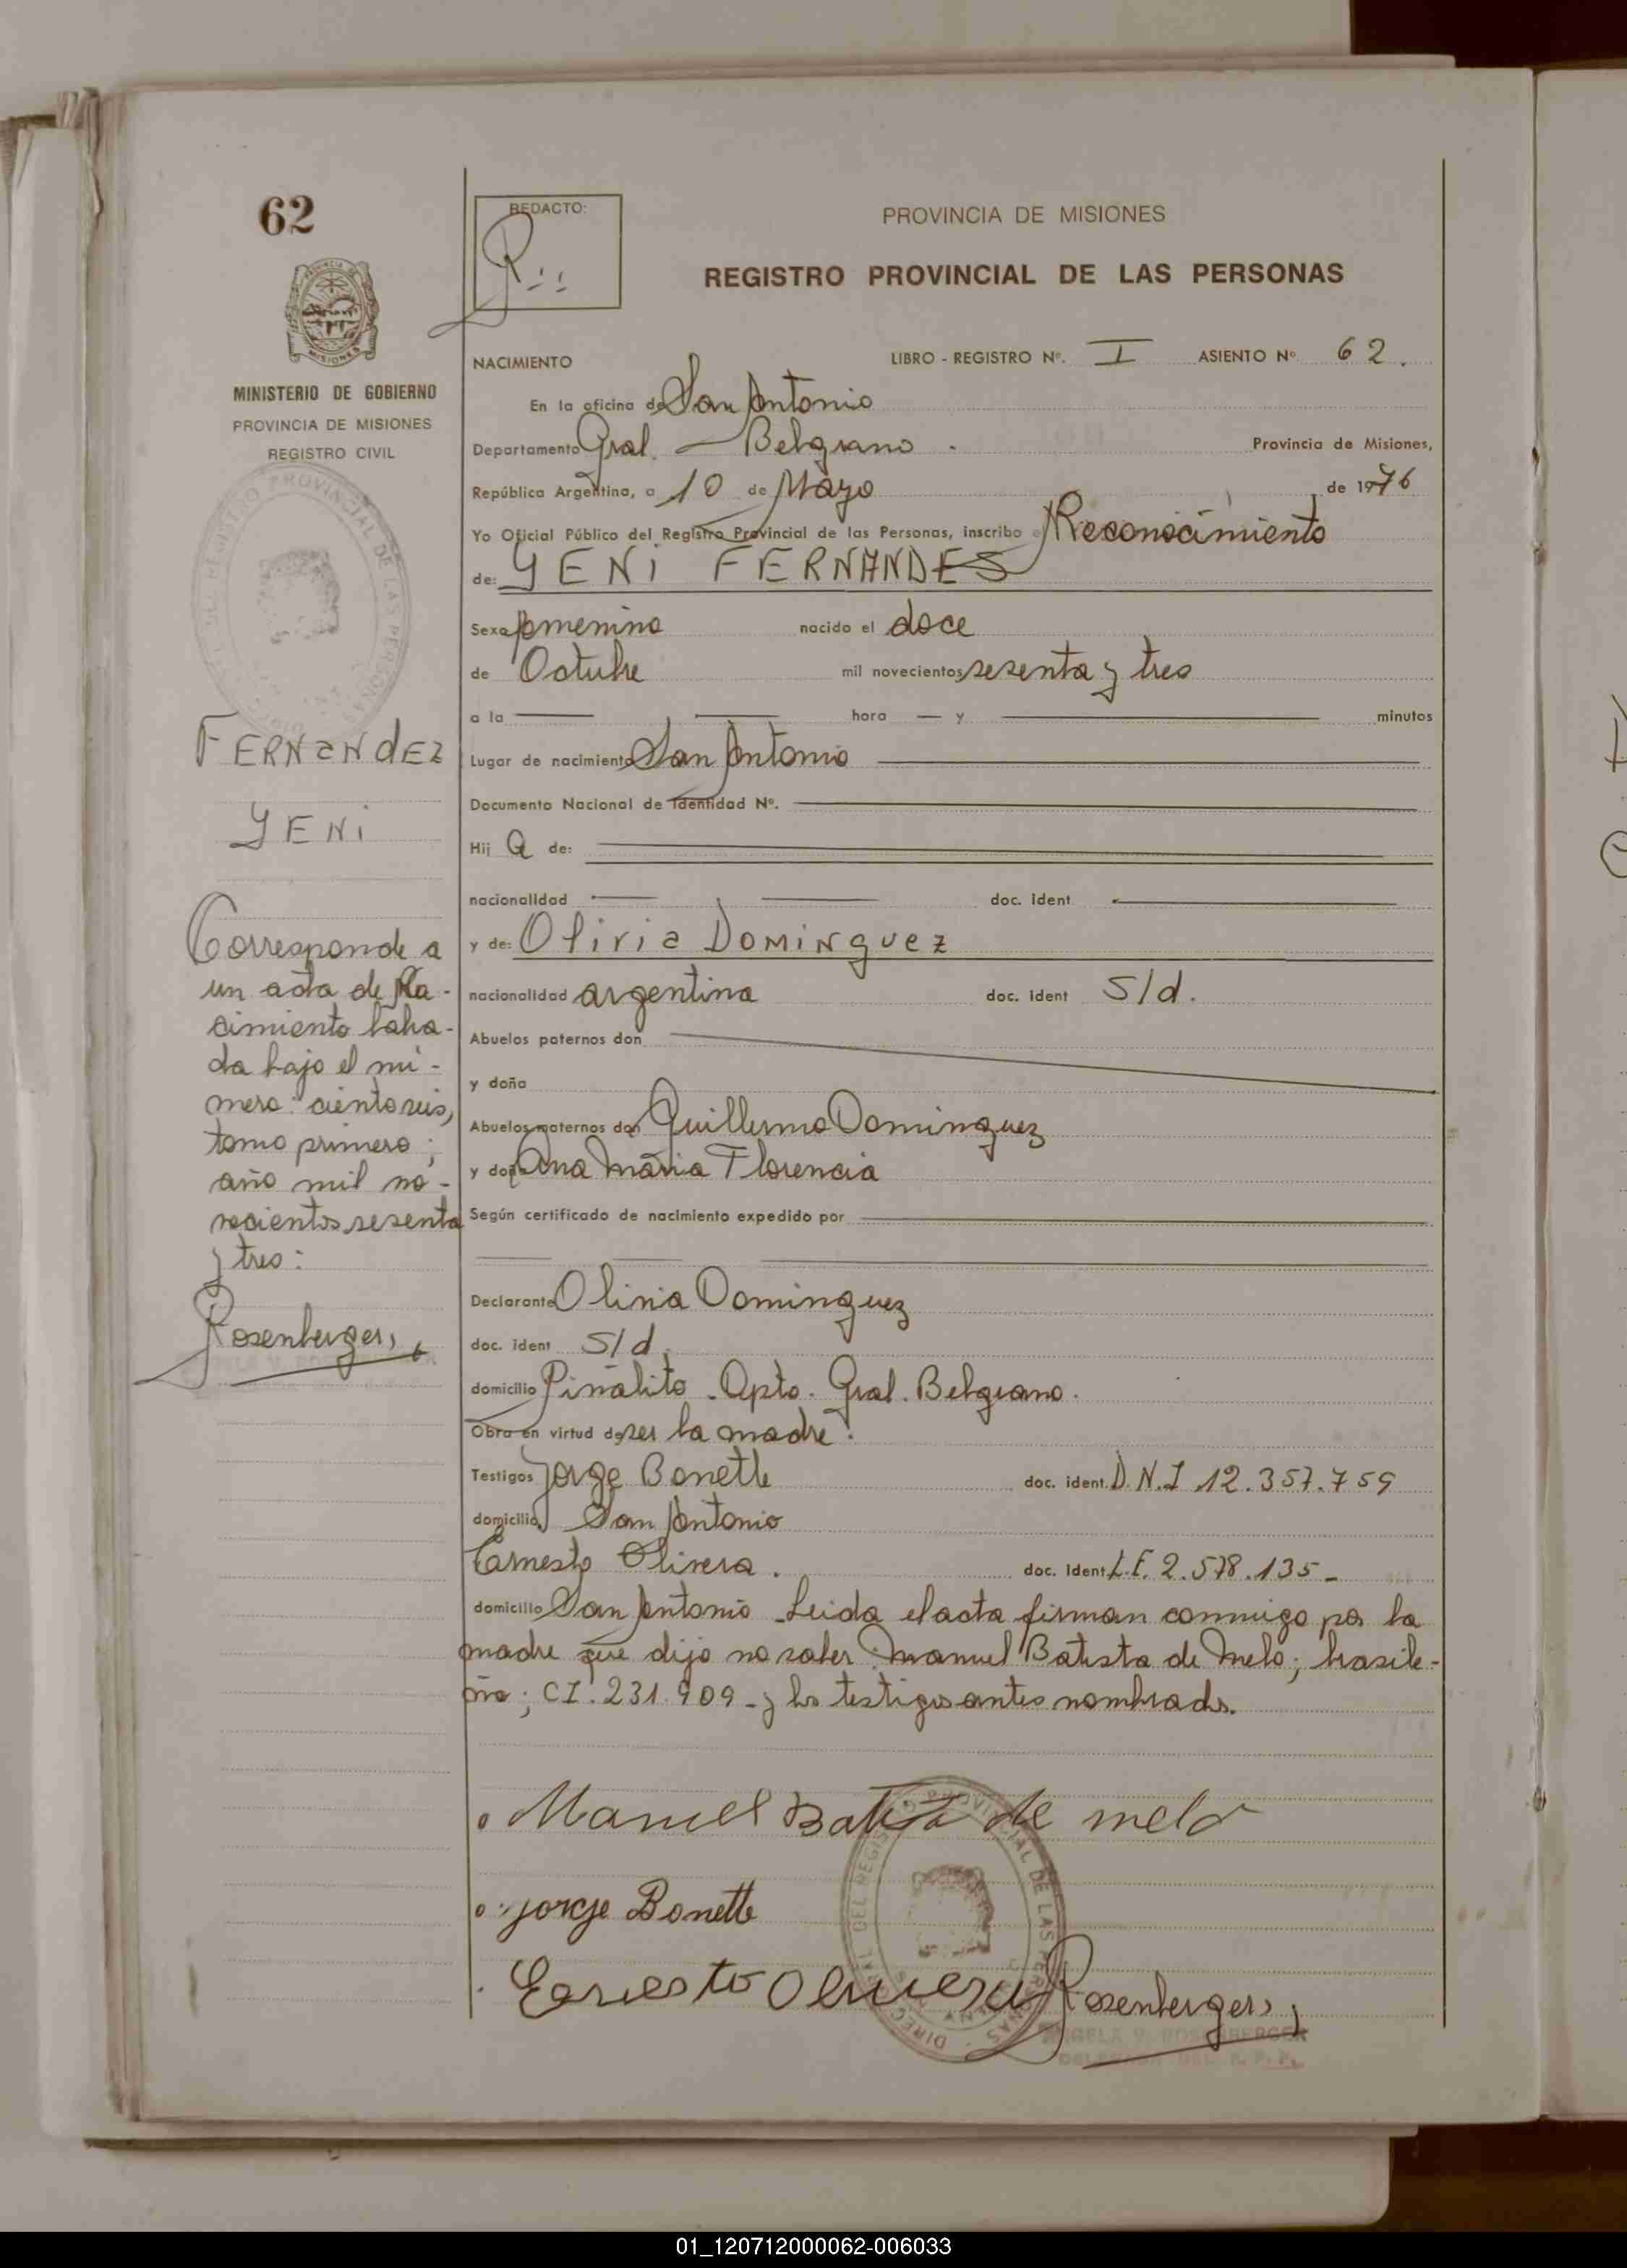 62
REDACTO:
PROVINCIA DE MISIONES
REGISTRO PROVINCIAL DE LAS PERSONAS
MINISTERIO DE GOBIERNO
PROVINCIA DE MISIONES
REGISTRO CIVIL
NACIMIENTO LIBRO - REGISTRO Nº. I ASIENTO Nº 62.
En la oficina de San Antonio
Departamento Gral. Belgrano. Provincia de Misiones,
República Argentina, a 10 de Mayo de 1976
Yo Oficial Público del Registro Provincial de las Personas, inscribo el Reconocimiento
de: YENi FERNANDES
Sexo femenino nacido el doce
de Octubre mil novecientos sesenta y tres
a la hora y minutos
Lugar de nacimiento San Antonio
Documento Nacional de Identidad Nº.
Hij a de:
nacionalidad doc. ident
y de: Olivia Dominguez
nacionalidad argentina doc. ident S/d.
Abuelos paternos don
y doña
Abuelos maternos don Guillermo Dominguez
y doña Ana Maria Florencia
Según certificado de nacimiento expedido por
Declarante Olivia Dominguez
doc. ident S/d.
domicilio Piñalito - Dpto. Gral. Belgrano.
Obra en virtud de ser la madre.
Testigos Jorge Bonette doc. ident. D.N.I 12.357.759
domicilio San Antonio
Ernesto Olivera. doc. ident L.E. 2.578.135-
domicilio San Antonio - Leida el acta firman conmigo por la
madre que dijo no saber: Manuel Batista de Melo; brasile-
ño; CI. 231.909 - y los testigos antes nombrados.
Manuel Batista de melo
Jorge Bonette
Ernesto Olivera
Rosenberger
ANGELA V. ROSENBERGER
DELEGADA DEL R. P. P.
FERNANdEZ
YENi
Corresponde a
un acta de Na-
cimiento laba-
da bajo el nú-
mero: ciento seis,
tomo primero;
año mil no-
vecientos sesenta
y tres:
Rosenberger
01_120712000062-006033